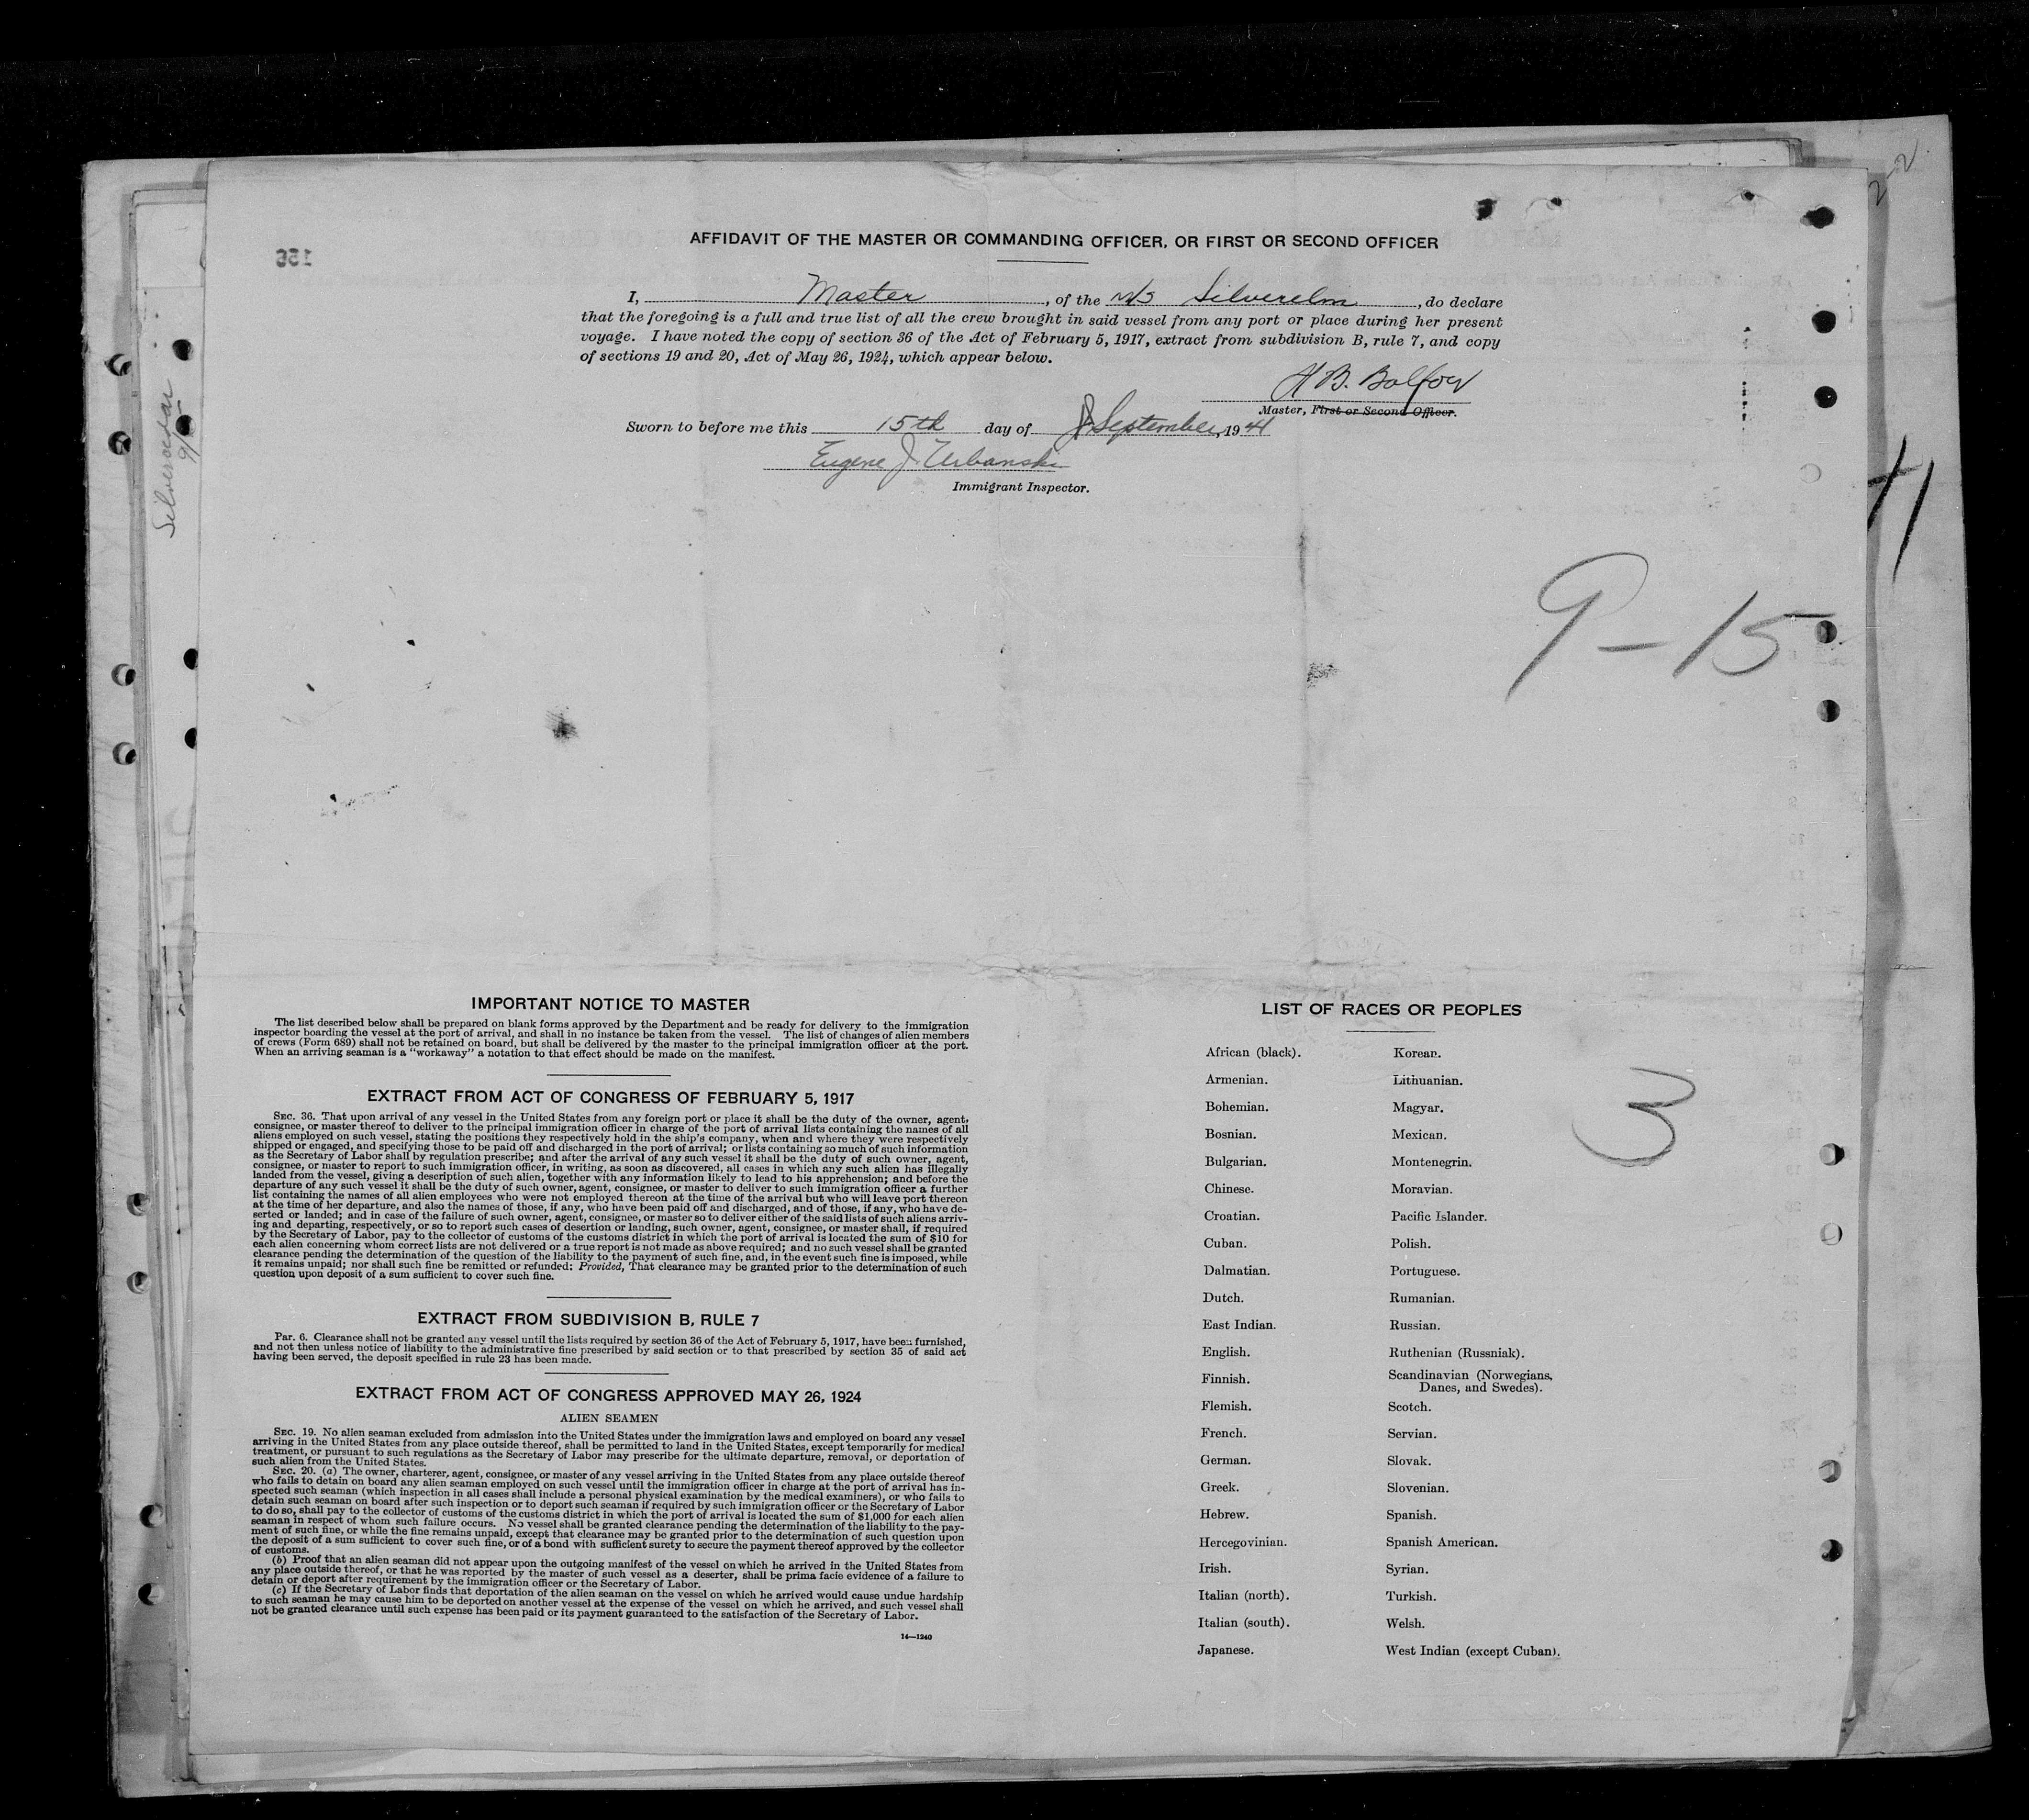 2-2
156
AFFIDAVIT OF THE MASTER OR COMMANDING OFFICER, OR FIRST OR SECOND OFFICER
I, Master, of the M/S Silverelm, do declare
that the foregoing is a full and true list of all the crew brought in said vessel from any port or place during her present
voyage. I have noted the copy of section 36 of the Act of February 5, 1917, extract from subdivision B, rule 7, and copy
of sections 19 and 20, Act of May 26, 1924, which appear below.
H B. Balfour
Master, First or Second Officer.
Sworn to before me this 15th day of September, 1941
Eugene J. Urbanski
Immigrant Inspector.
41
9-15
IMPORTANT NOTICE TO MASTER
The list described below shall be prepared on blank forms approved by the Department and be ready for delivery to the immigration
inspector boarding the vessel at the port of arrival, and shall in no instance be taken from the vessel. The list of changes of alien members
of crews (Form 689) shall not be retained on board, but shall be delivered by the master to the principal immigration officer at the port.
When an arriving seaman is a "workaway" a notation to that effect should be made on the manifest.
EXTRACT FROM ACT OF CONGRESS OF FEBRUARY 5, 1917
SEC. 36. That upon arrival of any vessel in the United States from any foreign port or place it shall be the duty of the owner, agent,
consignee, or master thereof to deliver to the principal immigration officer in charge of the port of arrival lists containing the names of all
aliens employed on such vessel, stating the positions they respectively hold in the ship's company, when and where they were respectively
shipped or engaged, and specifying those to be paid off and discharged in the port of arrival; or lists containing so much of such information
as the Secretary of Labor shall by regulation prescribe; and after the arrival of any such vessel it shall be the duty of such owner, agent,
consignee, or master to report to such immigration officer, in writing, as soon as discovered, all cases in which any such alien has illegally
landed from the vessel, giving a description of such alien, together with any information likely to lead to his apprehension; and before the
departure of any such vessel it shall be the duty of such owner, agent, consignee, or master to deliver to such immigration officer a further
list containing the names of all alien employees who were not employed thereon at the time of the arrival but who will leave port thereon
at the time of her departure, and also the names of those, if any, who have been paid off and discharged, and of those, if any, who have de-
serted or landed; and in case of the failure of such owner, agent, consignee, or master so to deliver either of the said lists of such aliens arriv-
ing and departing, respectively, or so to report such cases of desertion or landing, such owner, agent, consignee, or master shall, if required
by the Secretary of Labor, pay to the collector of customs of the customs district in which the port of arrival is located the sum of $10 for
each alien concerning whom correct lists are not delivered or a true report is not made as above required; and no such vessel shall be granted
clearance pending the determination of the question of the liability to the payment of such fine, and, in the event such fine is imposed, while
it remains unpaid; nor shall such fine be remitted or refunded: Provided, That clearance may be granted prior to the determination of such
question upon deposit of a sum sufficient to cover such fine.
EXTRACT FROM SUBDIVISION B, RULE 7
Par. 6. Clearance shall not be granted any vessel until the lists required by section 36 of the Act of February 5, 1917, have been furnished,
and not then unless notice of liability to the administrative fine prescribed by said section or to that prescribed by section 35 of said act
having been served, the deposit specified in rule 23 has been made.
EXTRACT FROM ACT OF CONGRESS APPROVED MAY 26, 1924
ALIEN SEAMEN
SEC. 19. No alien seaman excluded from admission into the United States under the immigration laws and employed on board any vessel
arriving in the United States from any place outside thereof, shall be permitted to land in the United States, except temporarily for medical
treatment, or pursuant to such regulations as the Secretary of Labor may prescribe for the ultimate departure, removal, or deportation of
such alien from the United States.
SEC. 20. (a) The owner, charterer, agent, consignee, or master of any vessel arriving in the United States from any place outside thereof
who fails to detain on board any alien seaman employed on such vessel until the immigration officer in charge at the port of arrival has in-
spected such seaman (which inspection in all cases shall include a personal physical examination by the medical examiners), or who fails to
detain such seaman on board after such inspection or to deport such seaman if required by such immigration officer or the Secretary of Labor
to do so, shall pay to the collector of customs of the customs district in which the port of arrival is located the sum of $1,000 for each alien
seaman in respect of whom such failure occurs. No vessel shall be granted clearance pending the determination of the liability to the pay-
ment of such fine, or while the fine remains unpaid, except that clearance may be granted prior to the determination of such question upon
the deposit of a sum sufficient to cover such fine, or of a bond with sufficient surety to secure the payment thereof approved by the collector
of customs.
(b) Proof that an alien seaman did not appear upon the outgoing manifest of the vessel on which he arrived in the United States from
any place outside thereof, or that he was reported by the master of such vessel as a deserter, shall be prima facie evidence of a failure to
detain or deport after requirement by the immigration officer or the Secretary of Labor.
(c) If the Secretary of Labor finds that deportation of the alien seaman on the vessel on which he arrived would cause undue hardship
to such seaman he may cause him to be deported on another vessel at the expense of the vessel on which he arrived, and such vessel shall
not be granted clearance until such expense has been paid or its payment guaranteed to the satisfaction of the Secretary of Labor.
14—1240
LIST OF RACES OR PEOPLES
African (black). Korean.
Armenian. Lithuanian.
Bohemian. Magyar.
Bosnian. Mexican.
Bulgarian. Montenegrin.
Chinese. Moravian.
Croatian. Pacific Islander.
Cuban. Polish.
Dalmatian. Portuguese.
Dutch. Rumanian.
East Indian. Russian.
English. Ruthenian (Russniak).
Finnish. Scandinavian (Norwegians,
Danes, and Swedes).
Flemish. Scotch.
French. Servian.
German. Slovak.
Greek. Slovenian.
Hebrew. Spanish.
Hercegovinian. Spanish American.
Irish. Syrian.
Italian (north). Turkish.
Italian (south). Welsh.
Japanese. West Indian (except Cuban).
3